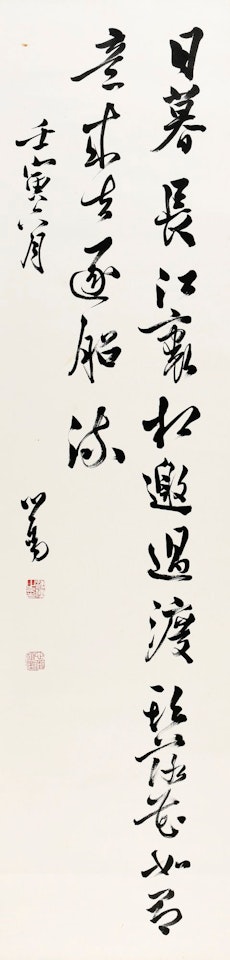 日暮長江裏相邀過渡頭落花如有
意來去逐船流
壬寅六月
心畬